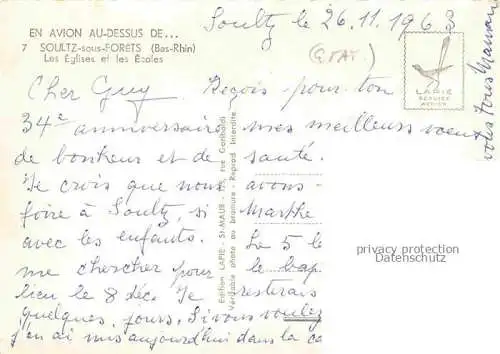 EN AVION AU-DESSUS DE...
7 SOULTZ-sous-FORETS (Bas-Rhin)
Les Églises et les Écoles
Soultz le 26.11.1963
LAPIE
SERVICE
AERIEN
Cher Guy Reçois pour ton
34e anniversaire mes meilleurs voeux
de bonheur et de santé.
Je crois que nous avons
foire à Soultz, si Marthe
avec les enfants. Le 5 le
me chercher pour le bap
lieu le 8 déc. Je resterais
quelques jours. Si vous voulez
j'en ai mis aujourd'hui dans la ca
vous tous Maman
Edition LAPIE - St-MAUR - rue Garibaldi
Véritable photo au bromure - Reprod Interdite
privacy protection
Datenschutz